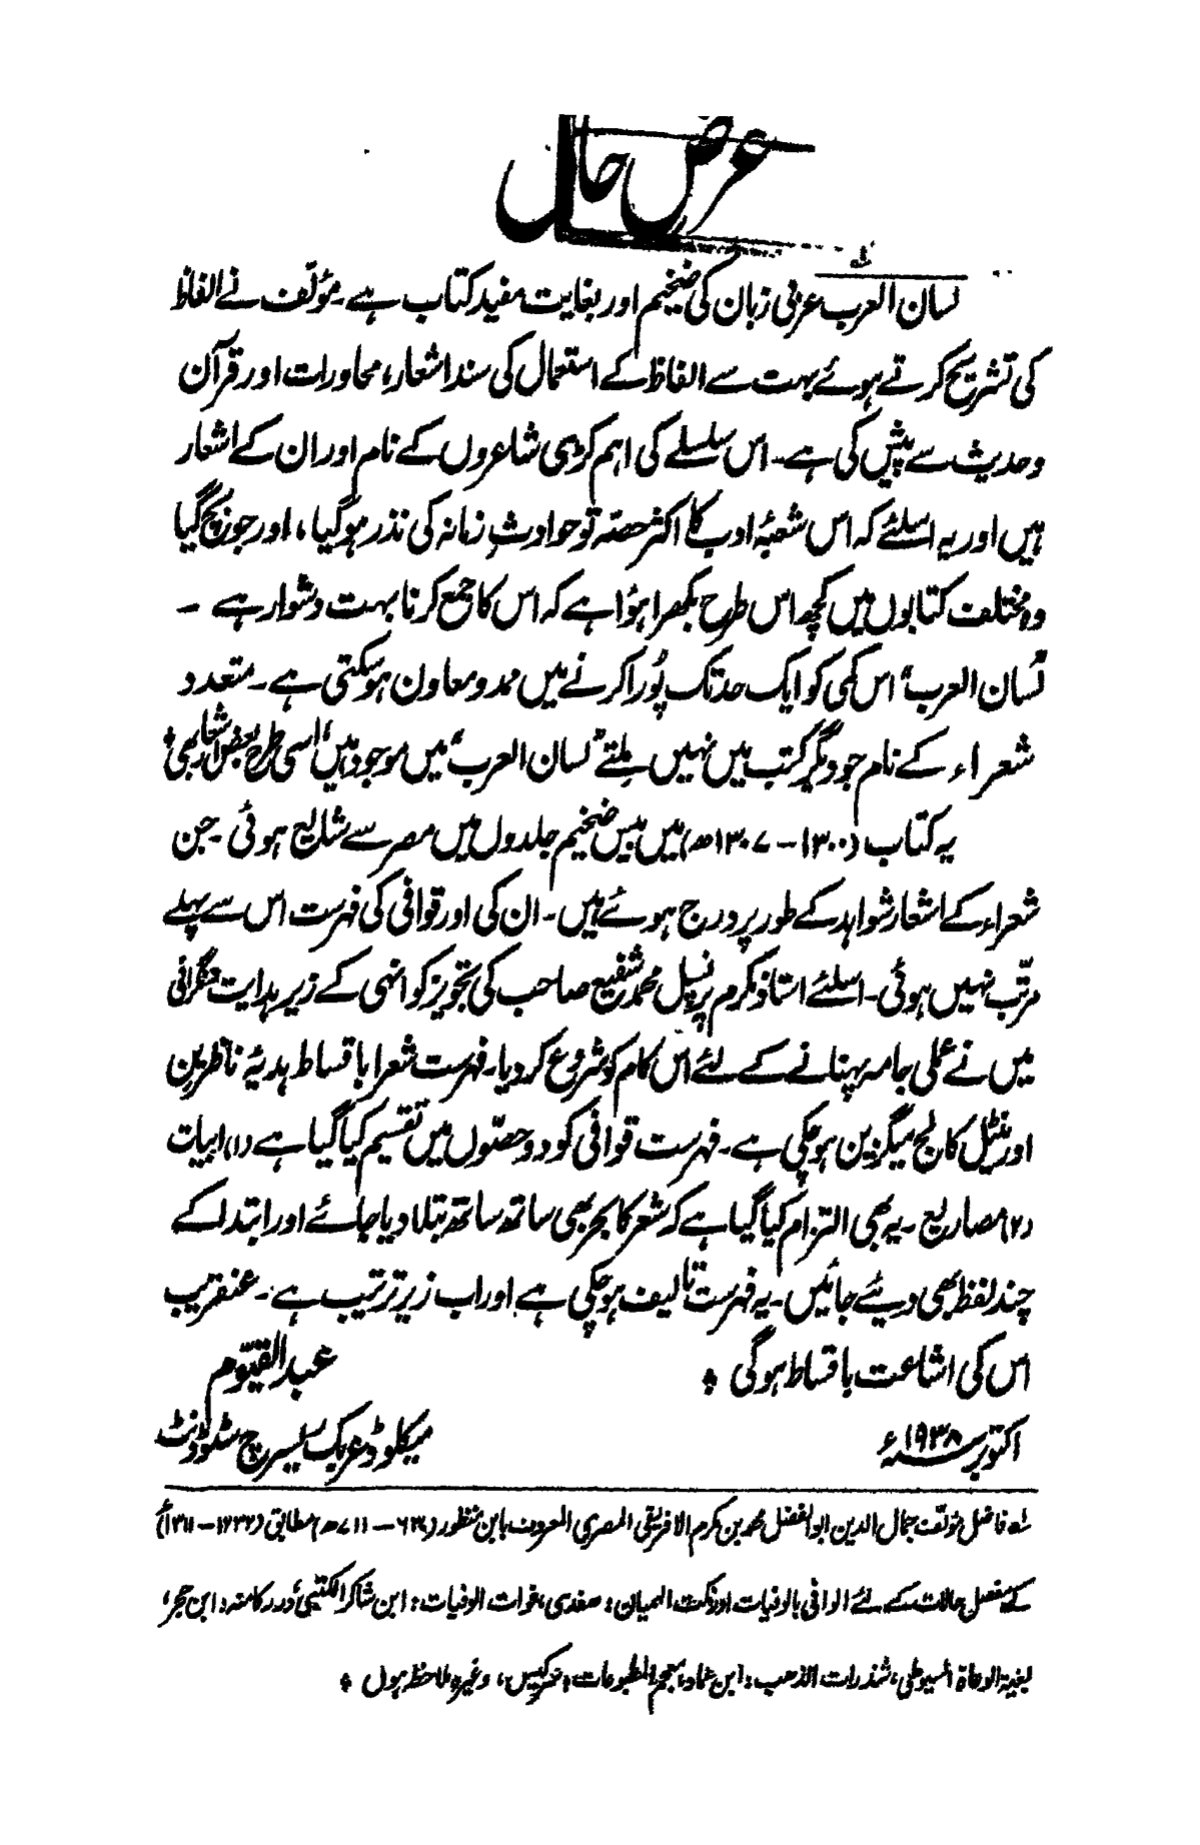 عرض حال
لسان العرب<sup>لہ</sup> عربی زبان کی ضخیم اور بغایت مفید کتاب ہے۔ مؤلّف نے الفاظ
کی تشریح کرتے ہوئے بہت سے الفاظ کے استعمال کی سند اشعار، محاورات اور قرآن
و حدیث سے پیش کی ہے۔ اس سلسلے کی اہم کڑی شاعروں کے نام اور ان کے اشعار
ہیں اور یہ اسلئے کہ اس شعبۂ ادب کا اکثر حصّہ تو حوادثِ زمانہ کی نذر ہو گیا، اور جو بچ گیا
وہ مختلف کتابوں میں کچھ اس طرح بکھرا ہؤا ہے کہ اس کا جمع کرنا بہت دشوار ہے ۔
"لسان العرب" اس کمی کو ایک حد تک پُورا کرنے میں ممد و معاون ہو سکتی ہے۔ متعدد
شعراء کے نام جو دیگر کتب میں نہیں ملتے "لسان العرب" میں موجود ہیں، اسی طرح بعض اشعار بھی ؞
یہ کتاب (۱۳۰۰ – ۱۳۰۷ھ) میں بیس ضخیم جلدوں میں مصر سے شایع ہوئی۔ جن
شعراء کے اشعار شواہد کے طور پر درج ہوئے ہیں۔ ان کی اور قوافی کی فہرست اس سے پہلے
مرتّب نہیں ہوئی۔ اسلئے استاذ مکرم پرنسپل محمد شفیع صاحب کی تجویز کو انہی کے زیر ہدایت و نگرانی
میں نے عملی جامہ پہنانے کے لئے اس کام کو شروع کر دیا۔ فہرست شعرا باقساط ہدیۂ ناظرین
اورینٹل کالج میگزین ہو چکی ہے۔ فہرست قوافی کو دو حصّوں میں تقسیم کیا گیا ہے (۱) ابیات
(۲) مصاریع۔ یہ بھی التزام کیا گیا ہے کہ شعر کا بحر بھی ساتھ ساتھ بتلا دیا جائے اور ابتدا کے
چند لفظ بھی دیئے جائیں۔ یہ فہرست تالیف ہو چکی ہے اور اب زیر ترتیب ہے۔ عنقریب
اس کی اشاعت باقساط ہوگی ؞
عبد القیّوم
اکتوبر ۱۹۳۸ء
میکلوڈ عریبک ریسرچ سٹوڈنٹ
لہ فاضل مؤلّف جمال الدین ابو الفضل محمد بن مکرم الافریقی المصری المعروف بابن منظور (۶۳۰ – ۷۱۱ھ) مطابق (۱۲۳۲ – ۱۳۱۱ء)
کے مفصل حالات کے لئے الوافی بالوفیات اور نکت الہمیان: صفدی، فوات الوفیات: ابن شاکر الکتبی، درر کامنہ: ابن حجر،
بغیۃ الوعاۃ السیوطی، شذرات الذھب: ابن عماد، معجم المطبوعات: سرکیس، وغیرہ ملاحظہ ہوں ؞